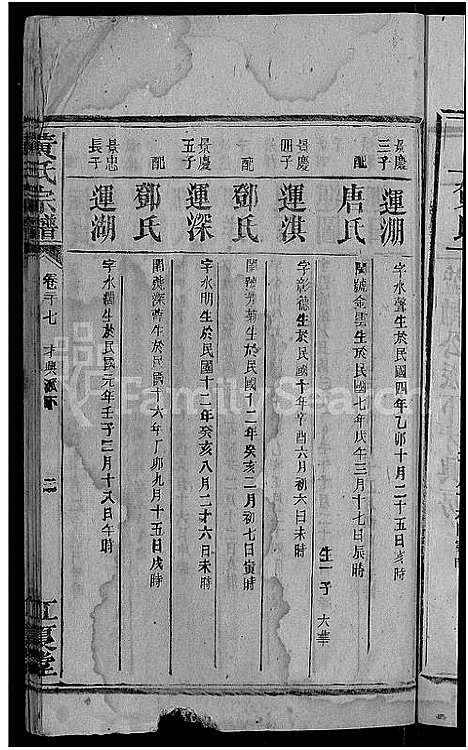 景慶三子 運淜 字水聲生於民國四年乙卯十月二十五日亥時
配 唐氏 閨號金雲生於民國七年戊午三月十七日辰時
生一子 大華
景慶四子 運淇 字彰德生於民國十年辛酉六月初六日未時
配 鄧氏 閨號 生於民國十二年癸亥二月初七日寅時
景慶五子 運深 字水明生於民國十二年癸亥八月二十六日未時
配 鄧氏 閨 深 生於民國十六年丁卯九月十五日戌時
景忠長子 運湖 字水 生於民國元年壬子 月十 日午時
黃氏宗譜
卷 十七
二
江夏堂
FamilySearch